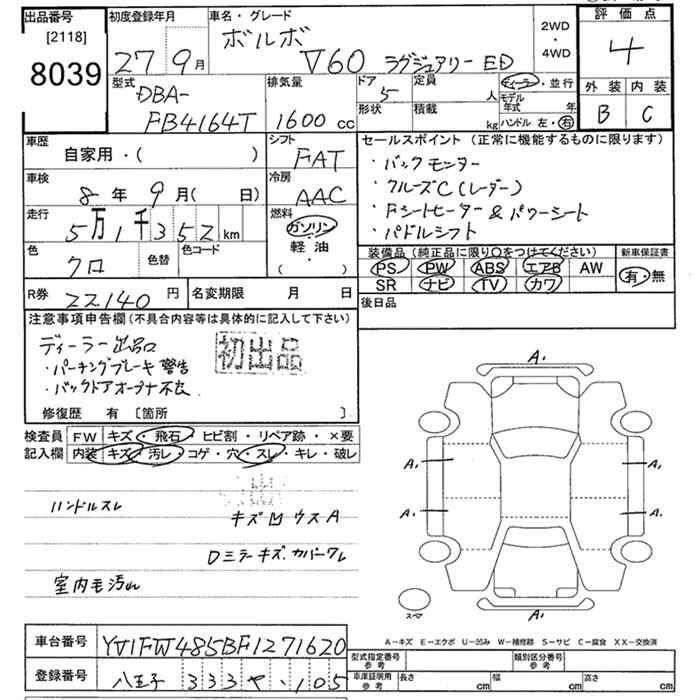 出品番号 初度登録年月 車名・グレード 2WD・4WD 評価点
[2118]
8039
27 9月 ボルボ V60 ラグジュアリー ED
4
外装 内装
B C
型式 DBA-FB4164T 排気量 1600 cc
ドア 5 定員 人 ディーラー・並行
形状 積載 kg モデル年式 年
ハンドル 左・右
車歴 自家用・( )
シフト FAT
車検 8年 9月( 日)
冷房 AAC
走行 5万1千352km
燃料 ガソリン・軽油・( )
色 クロ 色替 色コード
R券 22140円 名変期限 月 日
セールスポイント(正常に機能するものに限ります)
・バックモニター
・クルーズC(レーダー)
・Fシートヒーター&パワーシート
・パドルシフト
装備品(純正品に限り○をつけてください) 新車保証書
PS PW ABS エアB AW 有・無
SR ナビ TV カワ
後日品
注意事項申告欄(不具合内容等は具体的に記入して下さい)
ディーラー出品
初出品
・パーキングブレーキ警告
・バックドアオープナ不良
修復歴 有 [箇所 ]
検査員記入欄 FW キズ・飛石・ヒビ割・リペア跡・×要
内装 キズ・汚レ・コゲ・穴・スレ・キレ・破レ
ハンドルスレ
キズ凹ウスA
Dミラーキズ.カバーワレ
室内毛汚れ
A1
A1 A1
A1 A1
A1
スペア
A-キズ E-エクボ U-凹み W-補修跡 S-サビ C-腐食 XX-交換済
車台番号 YV1FW485BF1271620
登録番号 八王子 333 や・105
型式指定番号 参考 類別区分番号 参考
車庫証明用 参考 長さ cm 幅 cm 高さ cm